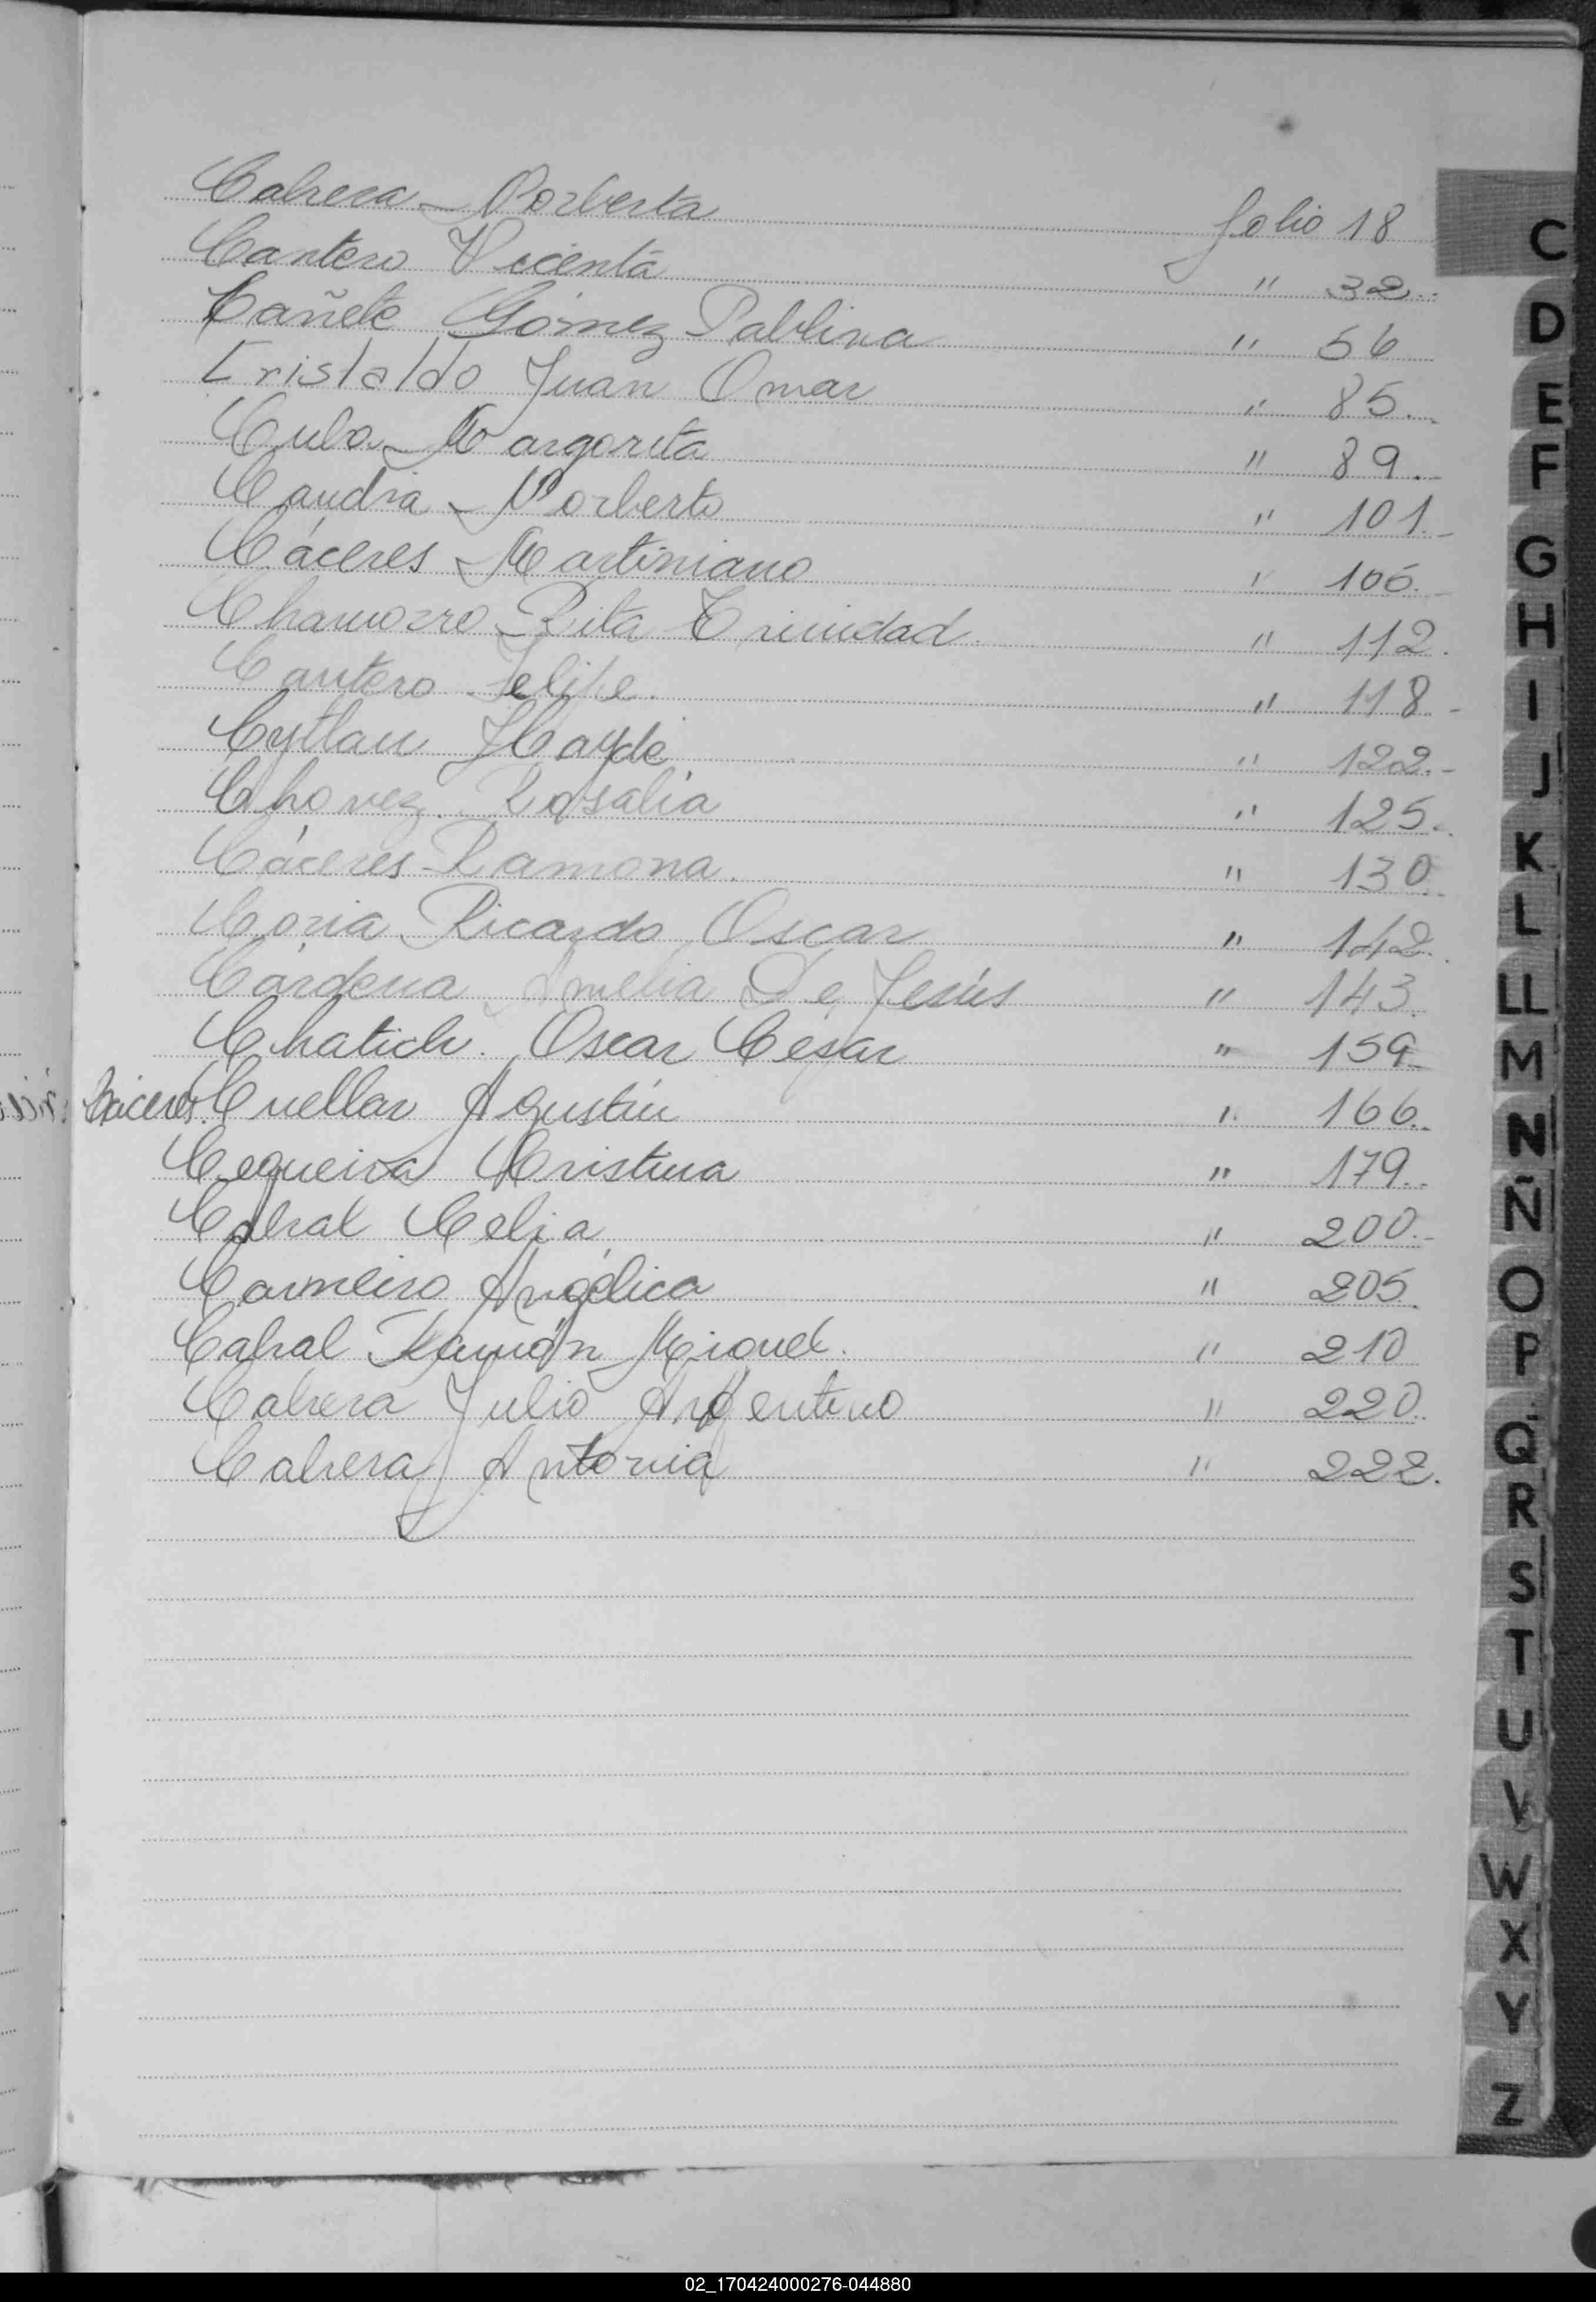 Cabrera Norberta folio 18
Cantero Vicenta " 32
Cañete Gómez Pablina " 56
Cristaldo Juan Omar " 85
Cuba Margarita " 89
Candia Norberto " 101
Cáceres Martiniano " 106
Chamorro Rita Trinidad " 112
Cantero Felipe " 118
Haydé " 122
Chavez Rosalia " 125
Cáceres Ramona " 130
Coria Ricardo Oscar " 142
Cárdena Amelia De Jesús " 143
Chatich Oscar César " 159
Cáceres Cuellar Agustín " 166
Cequeira Cristina " 179
Cabral Celia " 200
Carneiro Angélica " 205
Cabral Ramón Miguel " 210
Cabrera Julio Argentino " 220
Cabrera Antonia " 222
C
D
E
F
G
H
I
J
K
L
LL
M
N
Ñ
O
P
Q
R
S
T
U
V
W
X
Y
Z
02_170424000276-044880